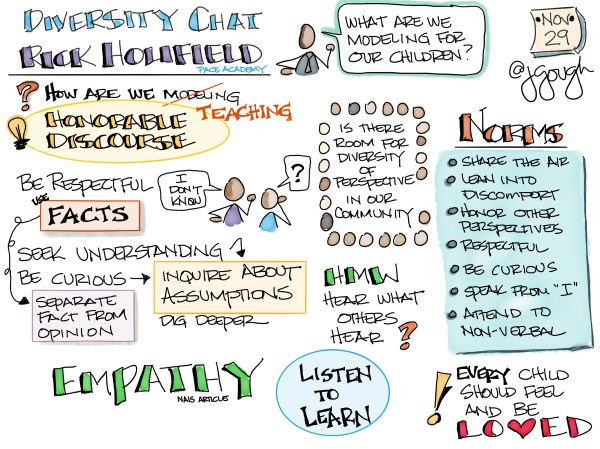 DIVERSITY CHAT
RICK HOLIFIELD
PACE ACADEMY
WHAT ARE WE
MODELING FOR
OUR CHILDREN?
NOV
29
@jgough
? HOW ARE WE MODELING
TEACHING
HONORABLE
DISCOURSE
BE RESPECTFUL
USE
FACTS
I
DON'T
KNOW
?
SEEK UNDERSTANDING
BE CURIOUS
INQUIRE ABOUT
ASSUMPTIONS
DIG DEEPER
SEPARATE
FACT FROM
OPINION
IS THERE
ROOM FOR
DIVERSITY
OF
PERSPECTIVE
IN OUR
COMMUNITY
HMW
HEAR WHAT
OTHERS
HEAR ?
NORMS
SHARE THE AIR
LEAN INTO
DISCOMFORT
HONOR OTHER
PERSPECTIVES
RESPECTFUL
BE CURIOUS
SPEAK FROM "I"
ATTEND TO
NON-VERBAL
EMPATHY
NAIS ARTICLE
LISTEN
TO
LEARN
! EVERY CHILD
SHOULD FEEL
AND BE
LOVED